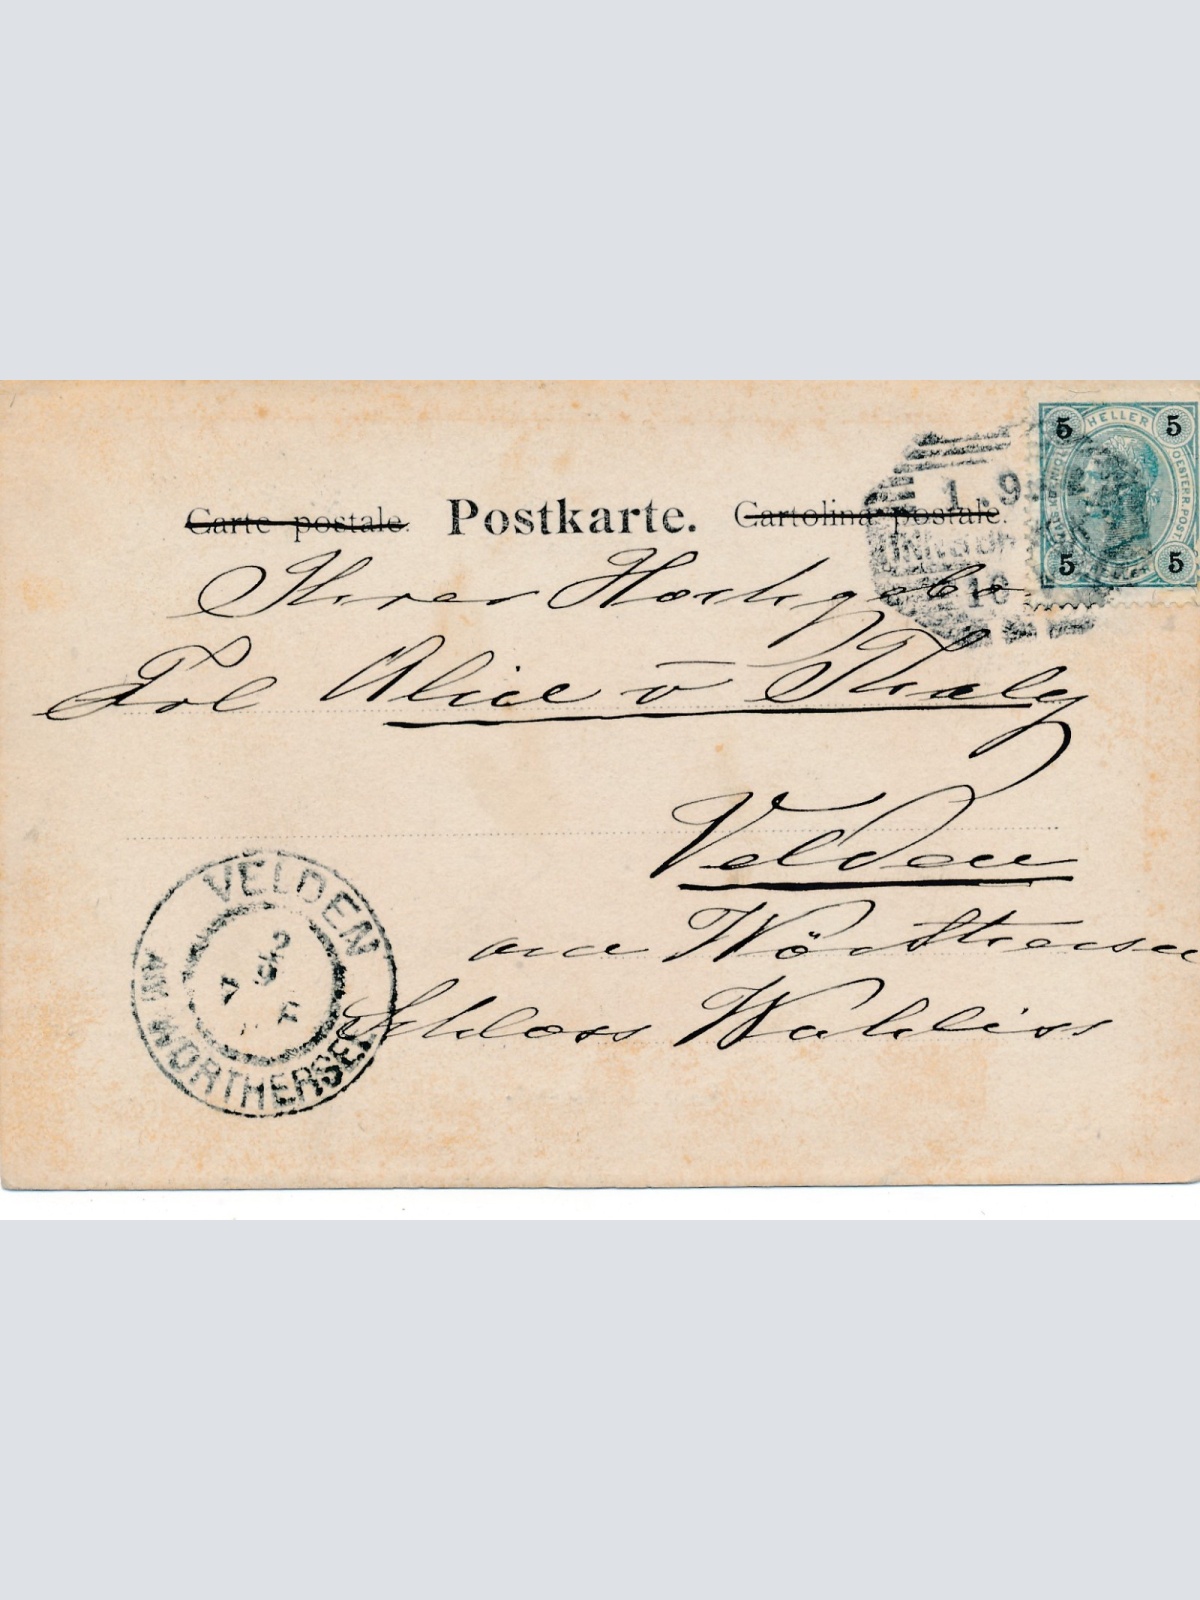 Carte postale. Postkarte. Cartolina postale.
5 HELLER 5
5 5
1.9
INNSBR
10
Ihrer Hochgebo
Frl Alice v Thaly
Velden
am Wörthersee
Schloss Wahliss
VELDEN
2
9
AM WÖRTHERSEE